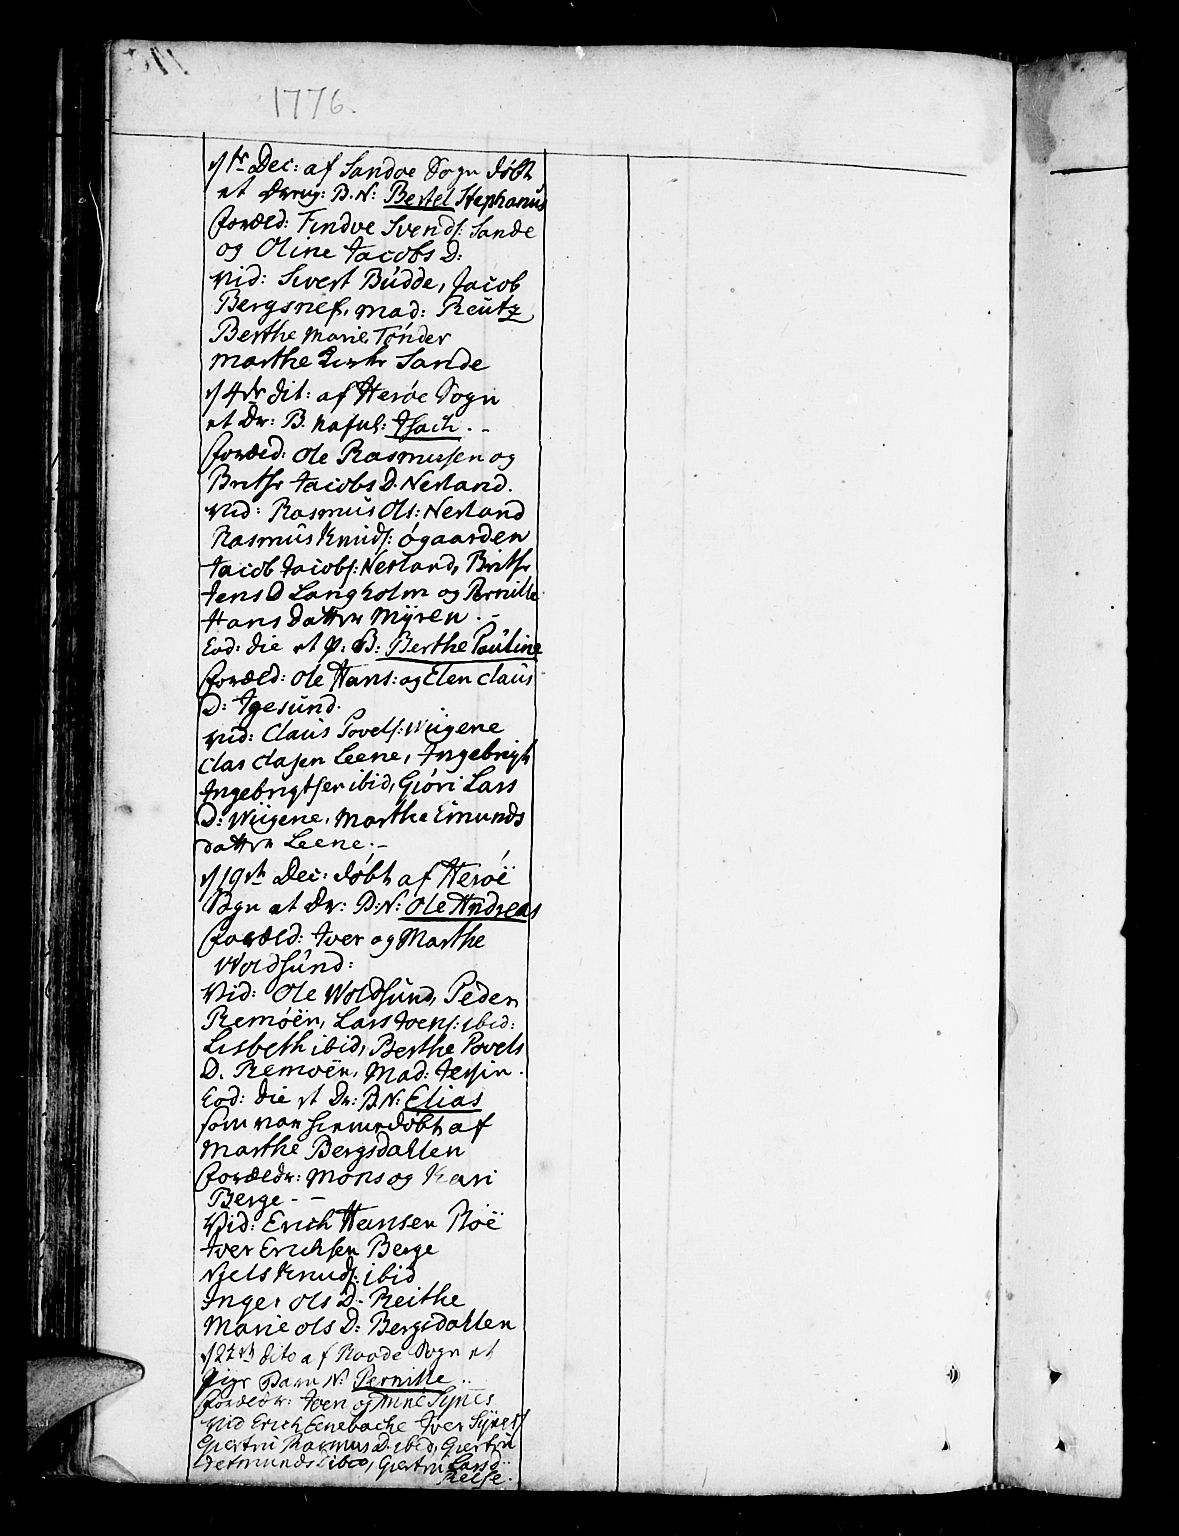 1776.
d 1te Dec: af Sandøe Sogn døbt
et Dreng: B. N: Bertel Stephanus
foræld: Findve Svends: Sande
og Oline Jacobs D:
Vid: Sivert Budde, Jacob
Bergsnef, Mad: Reutz
Berthe Marie Tønder
Marthe Sande
d 4de dit: af Herøe Sogn
et Dr: B. Nafnl: Isach. -
foræld: Ole Rasmussen og
Brithe Jacobs D. Nerland.
Vid: Rasmus Ols: Nerland
Rasmus Knuds: Øgaarden
Jacob Jacobs: Nerland, Brithe
Jens D Langholm og Pernille
Hans Datter Myren. -
Eod: die et P: B: Berthe Pauline
foræld: Ole Hans: og Elen Claus
D: Igesund.
Vid: Claus Povels: Wiigene
Clas Clasen Leene, Ingebrigt
Ingebrigtsen ibid, Giøri Lars
D: Wiigene, Marthe Eimunds
datter Leene. -
d 19de Dec: døbt af Herøe
Sogn et Dr: B: N: Ole Andreas
foræld: Iver og Marthe
Woldsund:
Vid: Ole Woldsund, Peder
Remøen, Lars Ivers: ibid:
Lisbeth ibid, Berthe Povels
D. Remøen, Mad: Jersin.
Eod: die et Dr: B N: Elias
som var hiemedøbt af
Marthe Bergsdahlen
forældr: Mons og Kari
Berge - -
Vid: Erich Hansen Røe
Iver Erichsen Berge
Niels Knuds: ibid
Inger Ols D. Reithe
Marie Ols D: Bergsdahlen
d 22de dito af Raade Sogn et
Pige Barn N: Pernille ..
forældr: Iver og Anne Synes
Vid Erich Eenebache Iver Synes
Giertru Rasmus D. ibid, Giertru
ibid, Giertru Lars D: